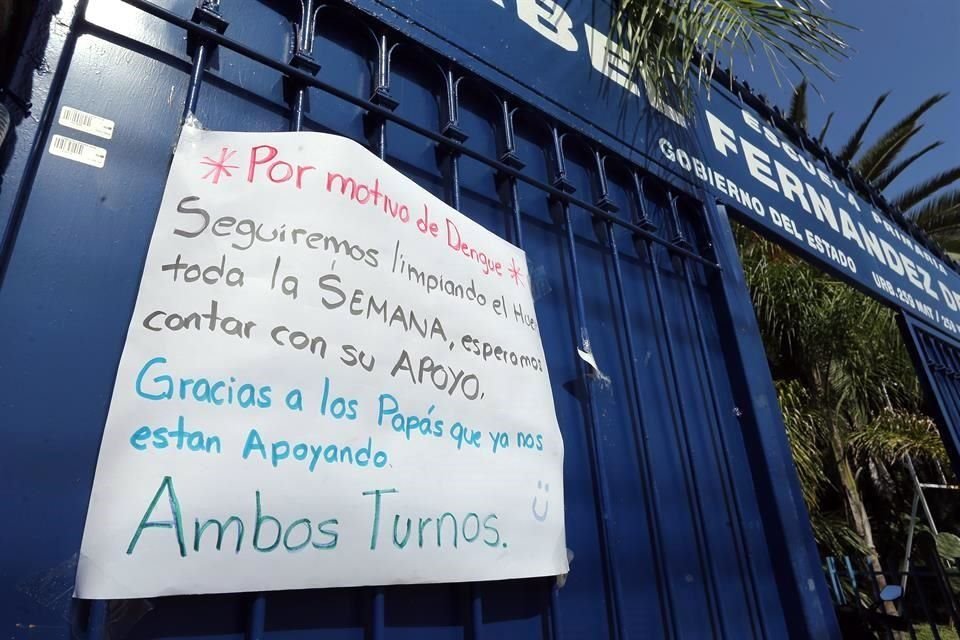 ESCUELA PRIMARIA
FERNANDEZ
GOBIERNO DEL ESTADO
*Por motivo de Dengue*
Seguiremos limpiando el
toda la SEMANA, esperamos
contar con su APOYO.
Gracias a los Papás que ya nos
estan Apoyando.
Ambos Turnos.